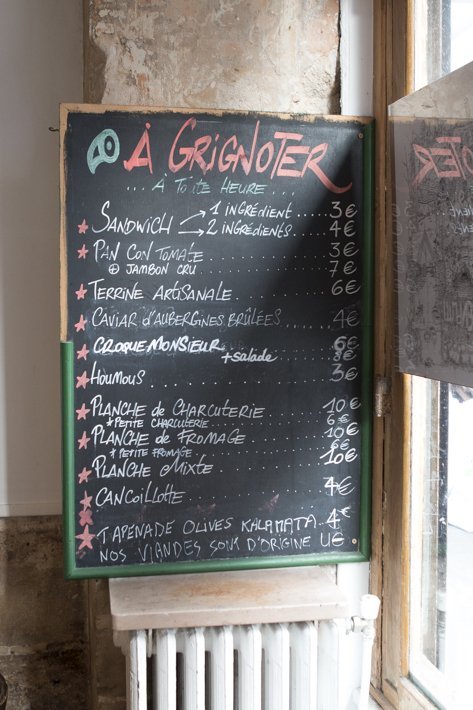 À GRIGNOTER
... À TOUTE HEURE ...
SANDWICH → 1 INGRÉDIENT .... 3€
→ 2 INGRÉDIENTS .... 4€
PAN CON TOMATE .... 3€
⊕ JAMBON CRU .... 7€
TERRINE ARTISANALE .... 6€
CAVIAR d'AUBERGINES BRÛLÉES .... 4€
CROQUE MONSIEUR .... 6€
+ salade 8€
HOUMOUS .... 3€
PLANCHE de CHARCUTERIE .... 10€
* PETITE CHARCUTERIE 6€
PLANCHE de FROMAGE .... 10€
* PETITE FROMAGE 6€
PLANCHE Mixte .... 10€
CANCOILLOTTE .... 4€
TAPENADE OLIVES KALAMATA .. 4€
NOS VIANDES SONT D'ORIGINE UE